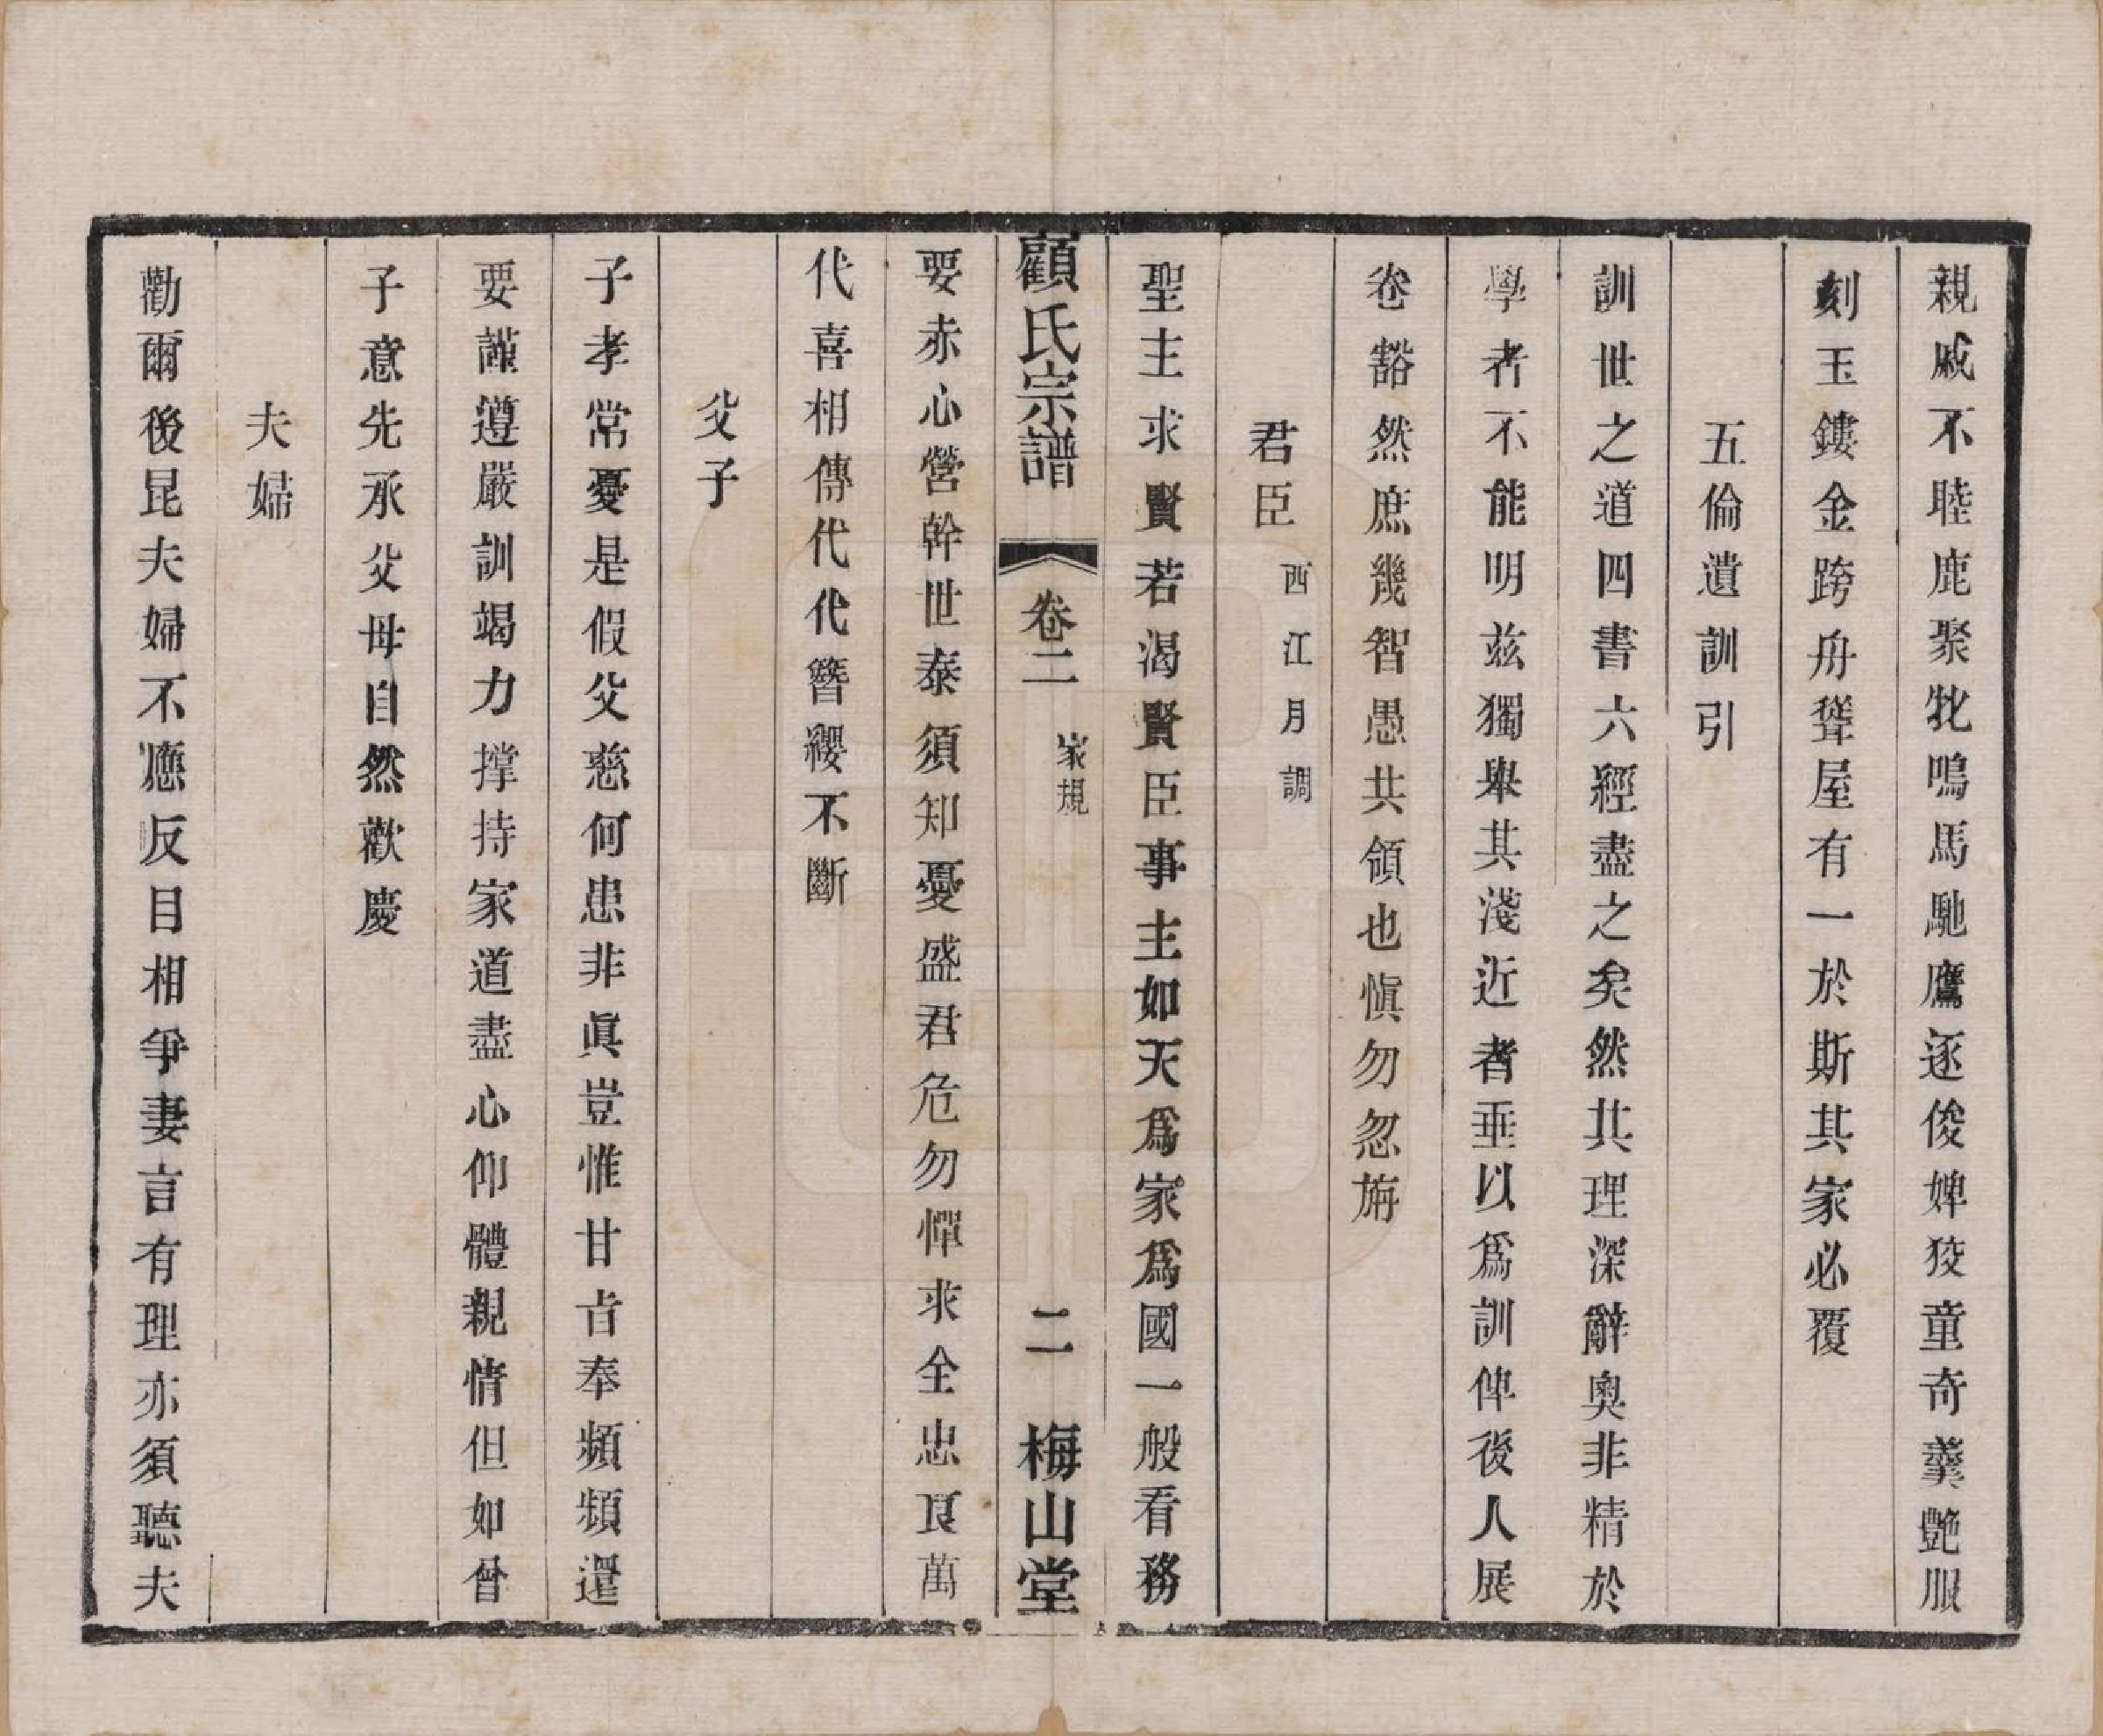 親戚不睦鹿聚牝鳴馬馳鷹逐俊婢狡童奇羹艷服
刻玉鏤金跨舟聳屋有一於斯其家必覆
五倫遺訓引
訓世之道四書六經盡之矣然其理深辭奧非精於
學者不能明兹獨舉其淺近者垂以爲訓俾後人展
卷豁然庶幾智愚共領也愼勿忽旃
君臣 西江月調
聖主求賢若渴賢臣事主如天爲家爲國一般看務
顧氏宗譜 卷二 家規 二 梅山堂
要赤心營幹世泰須知憂盛君危勿憚求全忠良萬
代喜相傳代代簪纓不斷
父子
子孝常憂是假父慈何患非眞豈惟甘旨奉頻頻還
要謹遵嚴訓竭力撑持家道盡心仰體親情但如曾
子意先承父母自然歡慶
夫婦
勸爾後昆夫婦不應反目相爭妻言有理亦須聽夫